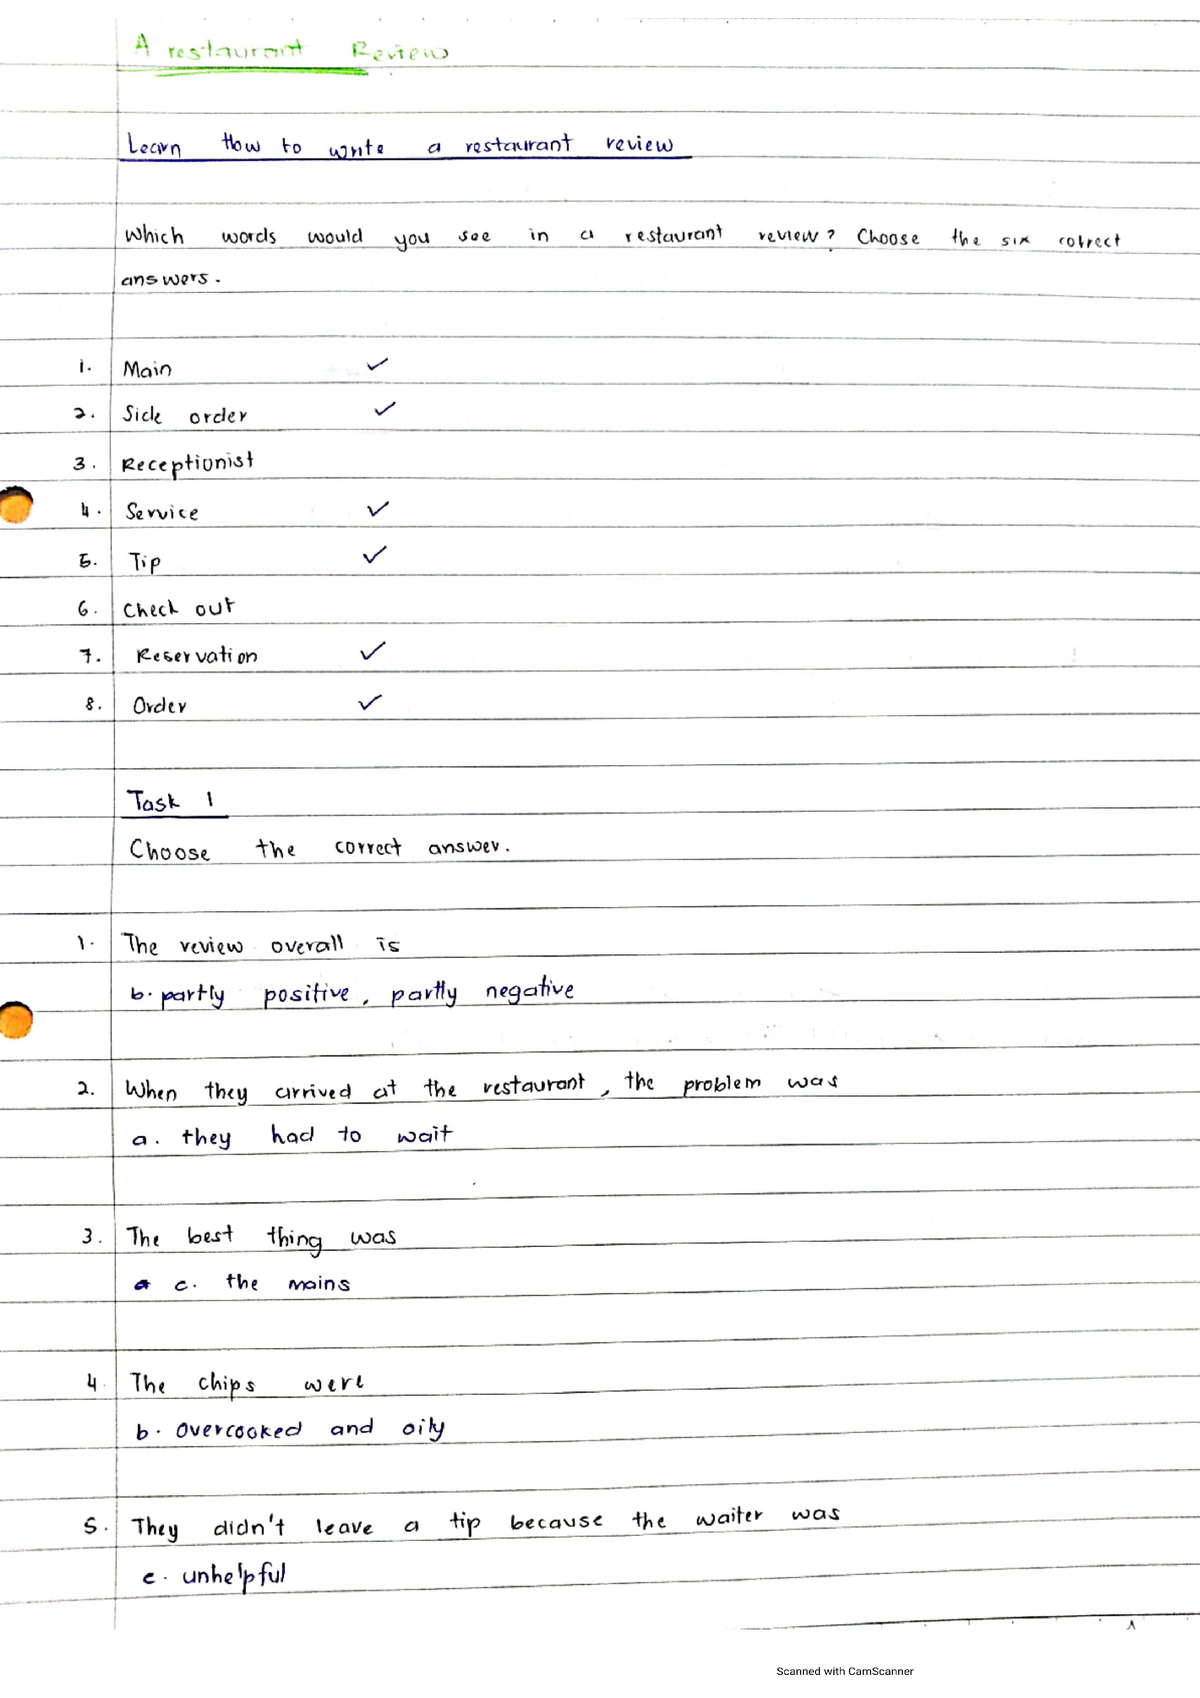 A restaurant Review
Learn How to write a restaurant review
Which words would you see in a restaurant review? Choose the six correct
answers.
1. Main ✓
2. Side order ✓
3. Receptionist
4. Service ✓
5. Tip ✓
6. Check out
7. Reservation ✓
8. Order ✓
Task 1
Choose the correct answer.
1. The review overall is
b. partly positive, partly negative
2. When they arrived at the restaurant, the problem was
a. they had to wait
3. The best thing was
c. the mains
4. The chips were
b. overcooked and oily
5. They didn't leave a tip because the waiter was
c. unhelpful
Scanned with CamScanner